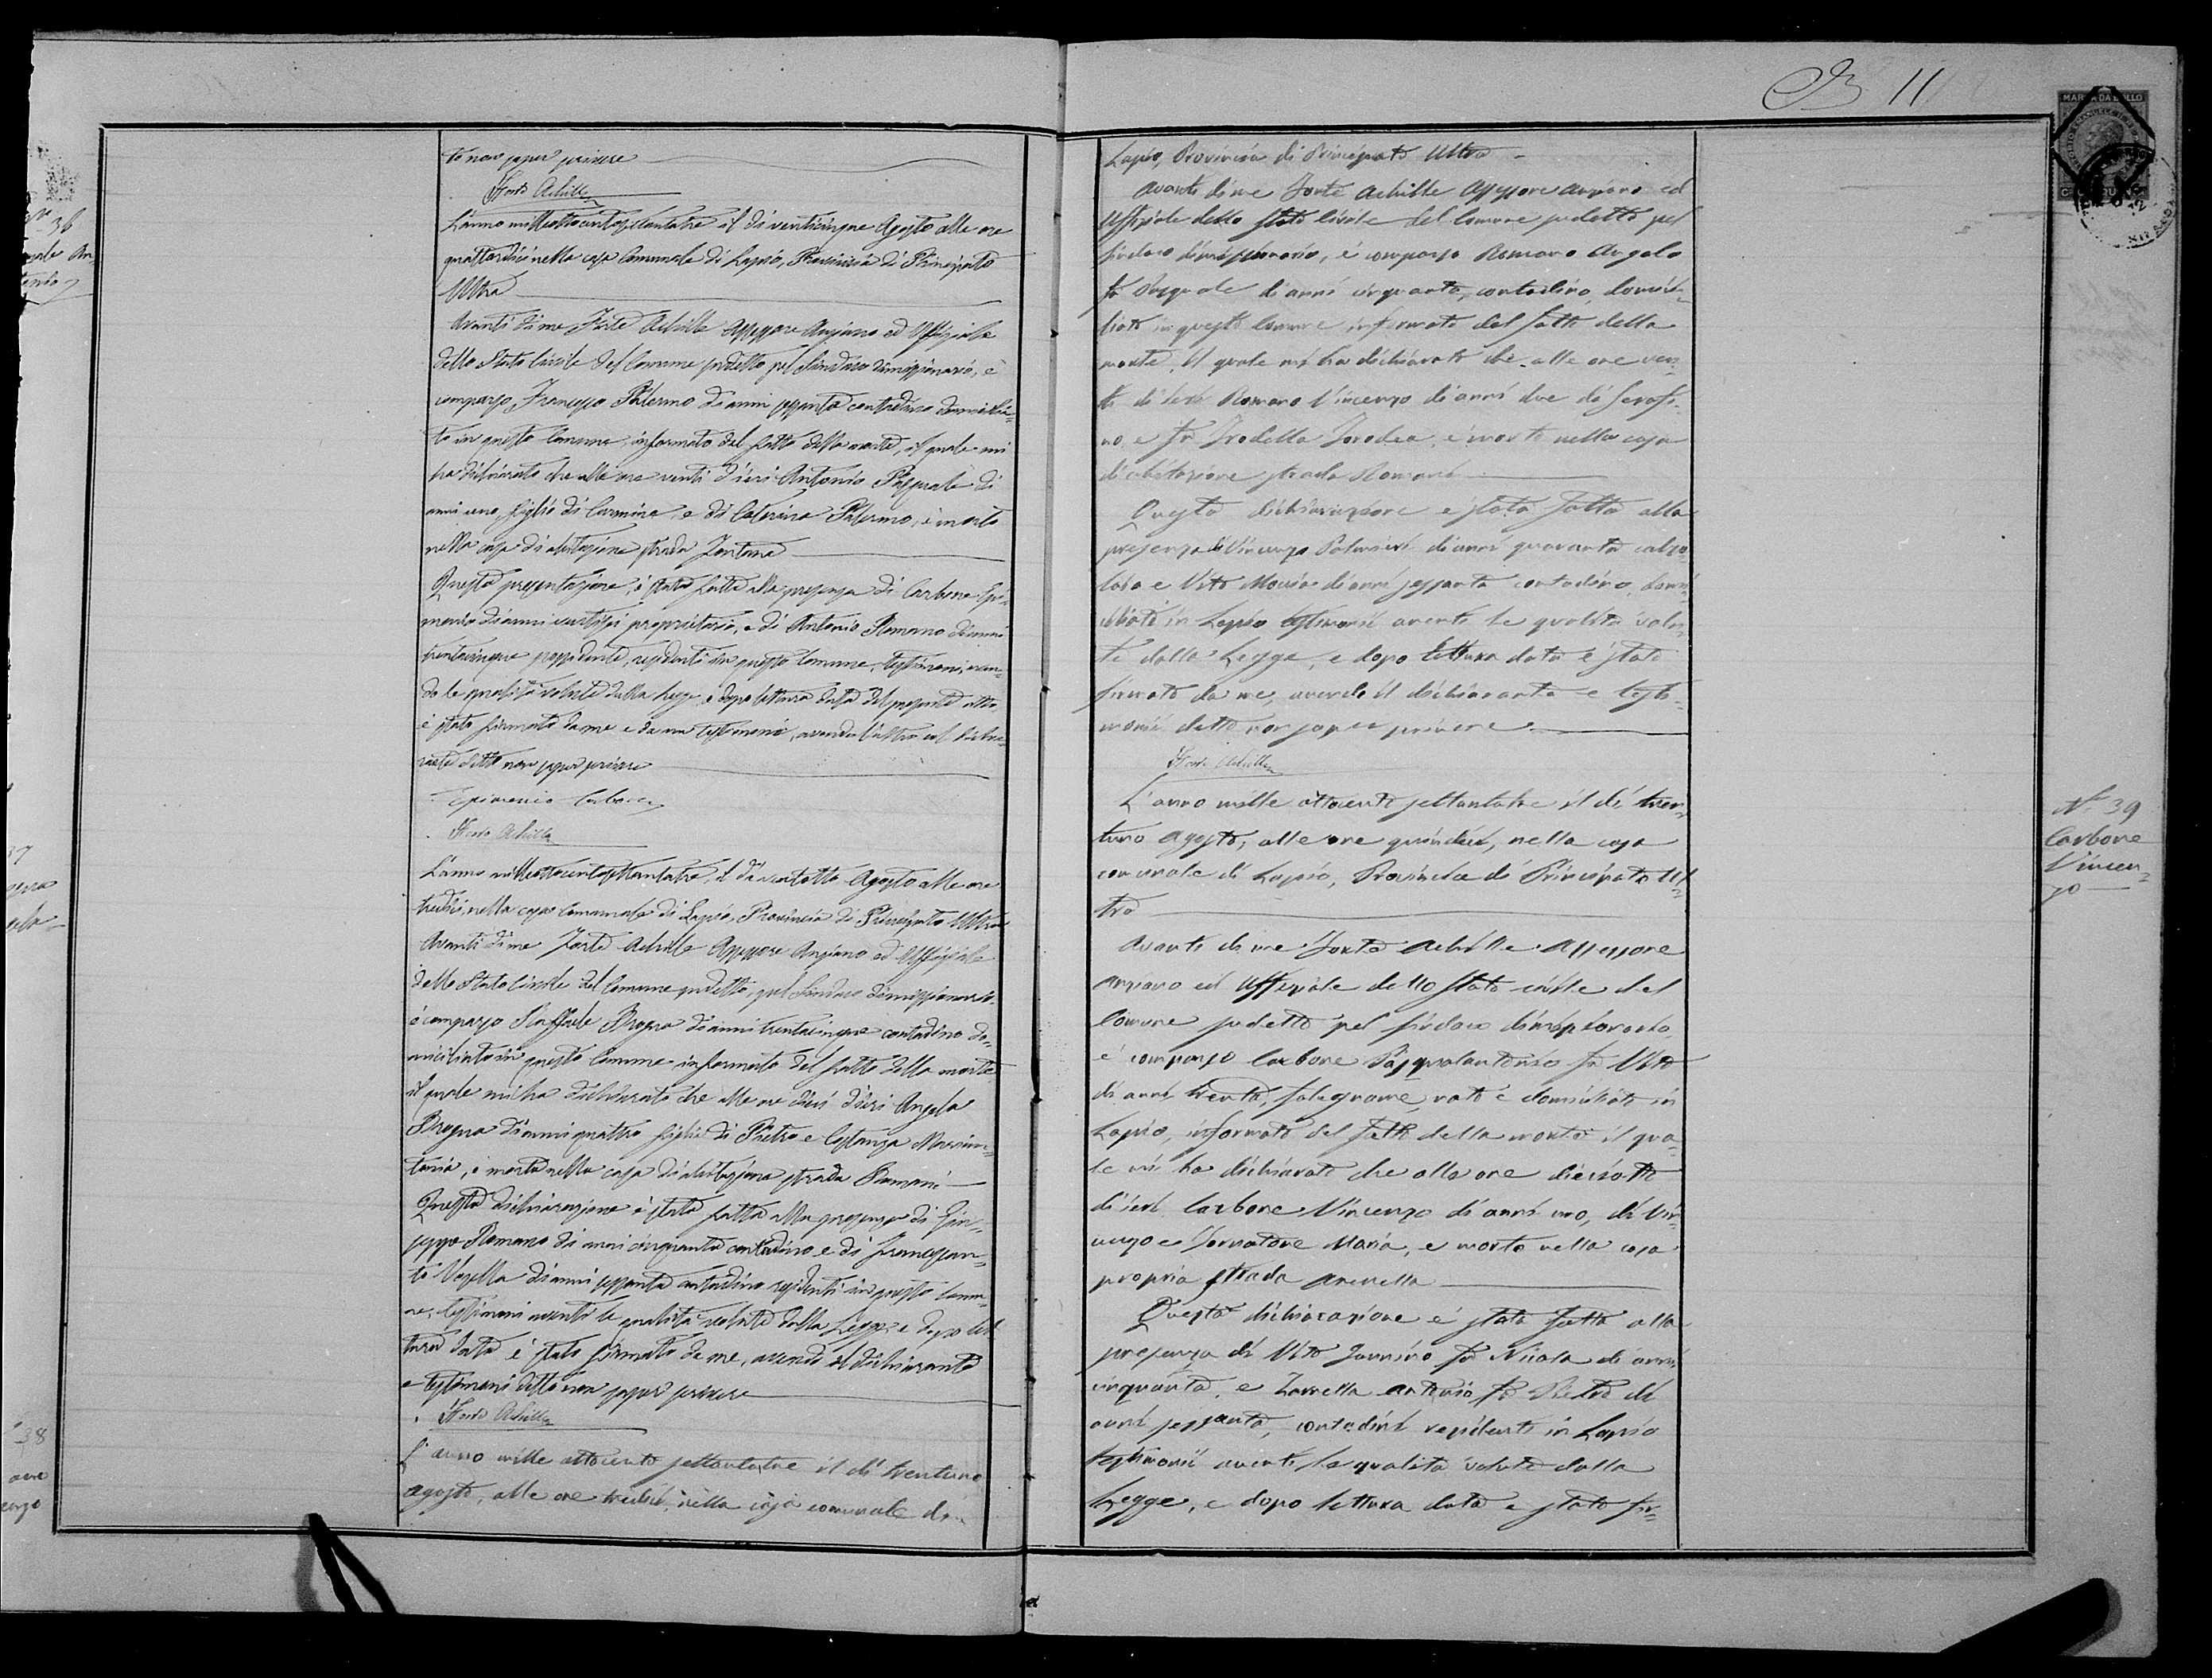 to non saper scrivere
Forte Achille
L'anno milleottocentosettantatre il dì venticinque Agosto alle ore
quattordici nella casa Comunale di Lapio, Provincia di Principato
Ultra
Avanti di me Forte Achille Assessore Anziano ed Uffiziale
dello Stato Civile del Comune sudetto pel Sindaco dimissionario, è
comparso Francesco Palermo di anni sessanta contadino domicilia-
to in questo Comune informato del fatto della morte, il quale mi
ha dichiarato che alle ore venti d'ieri Antonio Pasquale di
anni uno, figlio di Carmine e di Caterina Palermo, è morto
nella casa di abitazione strada Fontana
Questa presentazione, è stata fatta alla presenza di Carbone Epi-
menio di anni ventisei proprietario, e di Antonio Romano di anni
trentacinque possidente, residenti in questo Comune, testimoni aven-
do le qualità volute dalla legge, e dopo lettura data del presente atto
è stato firmato da me e da un testimonio, avendo l'altro ed il dichia-
rante detto non saper scrivere
Epimenio Carbone
Forte Achille
L'anno milleottocentosettantatre, il dì ventotto Agosto alle ore
tredici, nella casa Comunale di Lapio, Provincia di Principato Ultra
Avanti di me Forte Achille Assessore Anziano ed Uffiziale
dello Stato Civile del Comune sudetto, pel Sindaco dimissionario
è comparso Raffaele Brogna di anni trentacinque contadino do-
miciliato in questo Comune informato del fatto della morte
il quale mi ha dichiarato che alle ore dieci d'ieri Angela
Brogna di anni quattro figlia di Pietro e Costanza
è morta nella casa di abitazione strada Romani
Questa dichiarazione è stata fatta alla presenza di Giu-
seppe Romano di anni cinquanta contadino e di Francescan-
to di anni sessanta contadino residenti in questo Comu-
ne, testimoni aventi le qualità volute dalla Legge, e dopo let
tura data è stato firmato da me, avendo il dichiarante
e testimoni detto non saper scrivere
Forte Achille
L'anno mille ottocento settantatre il dì trentuno
agosto, alle ore tredici, nella casa comunale di
11
MARCA DA BOLLO
Lapio, Provincia di Principato Ultra
Avanti di me Forte Achille Assessore anziano ed
Uffiziale dello Stato Civile del Comune sudetto pel
sindaco dimissionario, è comparso Romano Angelo
fu Pasquale di anni cinquanta, contadino, domici-
liato in questo Comune informato del fatto della
morte, il quale mi ha dichiarato che alle ore ven
ti di ieri Romano Vincenzo di anni due di Serafi-
no e fu è morto nella casa
di abitazione strada Romani
Questa dichiarazione è stata fatta alla
presenza di Vincenzo Palmieri di anni quaranta calzo
laio e Vito di anni sessanta contadino, domi-
ciliati in Lapio testimonii aventi le qualità volu-
te dalla Legge, e dopo lettura data è stato
firmato da me, avendo il dichiarante e testi-
monii detto non saper scrivere
Forte Achille
L'anno mille ottocento settantatre il dì tren
tuno agosto, alle ore quindici, nella casa
comunale di Lapio, Provincia di Principato Ul
tra
Avanti di me Forte Achille Assessore
anziano ed Uffiziale dello Stato civile del
Comune sudetto pel sindaco dimissionario
è comparso Carbone Pasqualantonio fu Vito
di anni trenta, falegname, nato e domiciliato in
Lapio, informato del fatto della morte il qua-
le mi ha dichiarato che alle ore dieciotto
di ieri Carbone Vincenzo di anni uno, di Vin-
cenzo e Maria, è morto nella casa
propria strada Arenella
Questa dichiarazione è stata fatta alla
presenza di Vito fu Nicola di anni
cinquanta, e Zarrella Antonio fu Pietro di
anni sessanta, contadini residenti in Lapio
testimonii aventi la qualità volute dalla
Legge, e dopo lettura data è stato fir-
N° 39
Carbone
Vincen-
zo